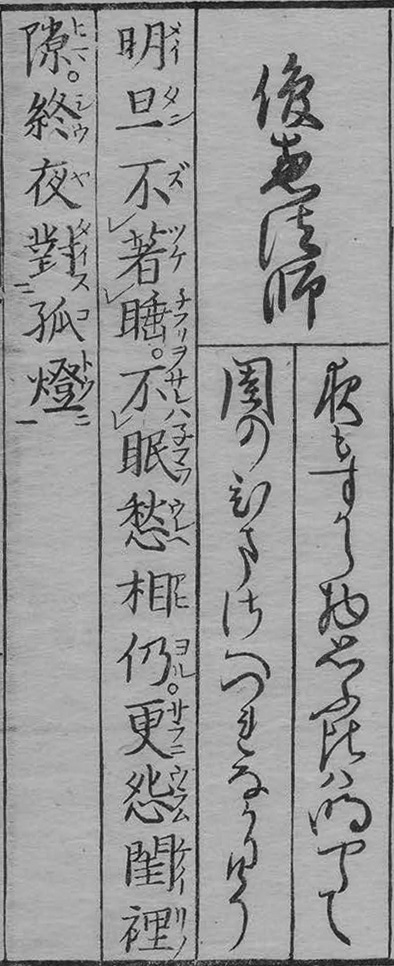 俊惠法師
夜もすから物思ふ比ハ明やらて
閨のひまさへつれなかりけり
明旦不㆑著㆑睡。不㆑眠愁相仍。更怨閨裡
隙。終夜對㆓孤燈㆒